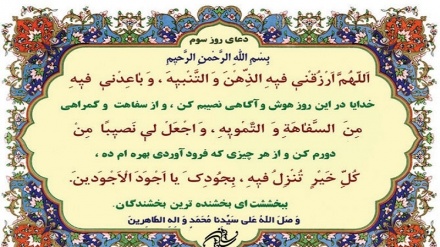 دعای روز سوم
بِسْمِ اللهِ الرَّحْمنِ الرَّحِیمِ
اَللّهُمَّ ارْزُقْني فيهِ الذِّهْنَ وَ التَّنْبيهَ ، وَ باعِدْني فيهِ
خدایا در این روز هوش و آگاهی نصیبم کن ، و از سفاهت و گمراهی
مِنَ السَّفاهَةِ وَ التَّمْويهِ ، وَ اجْعَلْ لي نَصيبًا مِنْ
دورم کن و از هر چیزی که فرود آوردی بهره ام ده ،
كُلِّ خَيْرٍ تُنْزِلُ فيهِ ، بِجُودِكَ يا اَجْوَدَ الْاَجْوَدينَ.
ببخششت ای بخشنده ترین بخشندگان.
وَ صَلَّ اللهُ عَلی سَیِّدِنا مُحَمَّدٍ وَ الِهِ الطّاهِرینَ